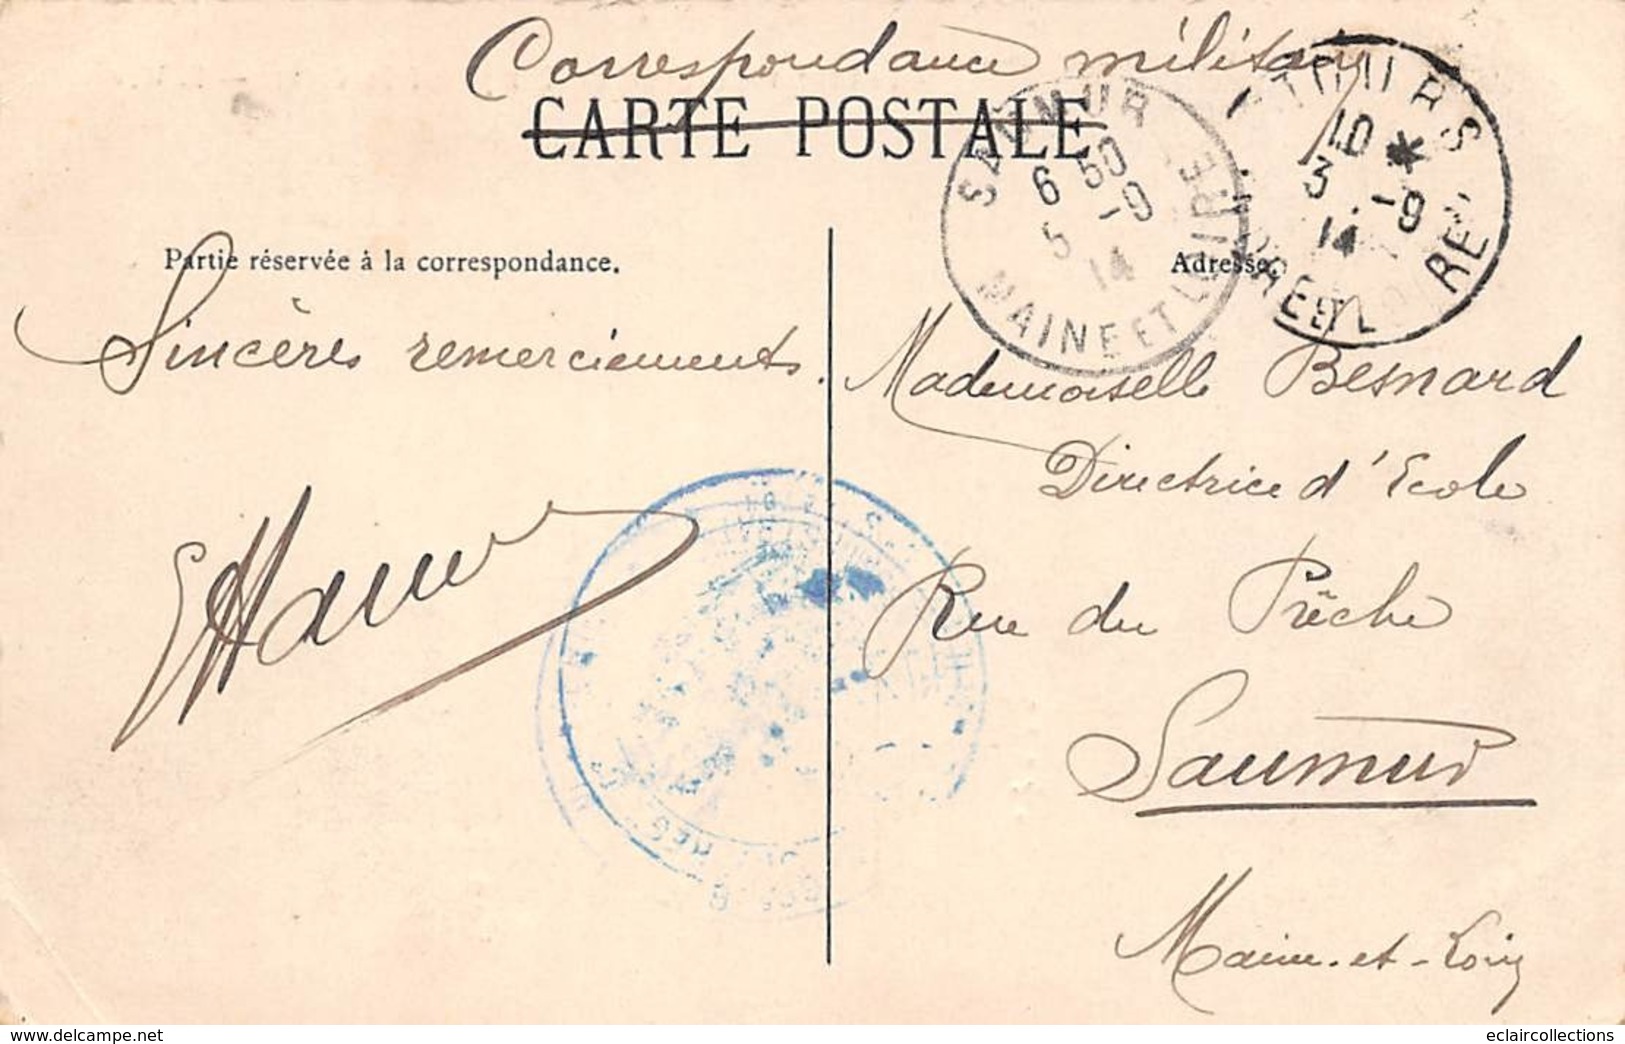 Correspondance militaire
CARTE POSTALE
SAUMUR
6 50
5 -9
14
MAINE ET LOIRE
TOURS
10 *
3 -9
14
Partie réservée à la correspondance.
Adresse.
Sincères remerciements.
Mademoiselle Besnard
Directrice d'Ecole
Rue du Prêche
Saumur
Maine-et-Loire
https://www.delcampe.net
eclaircollections